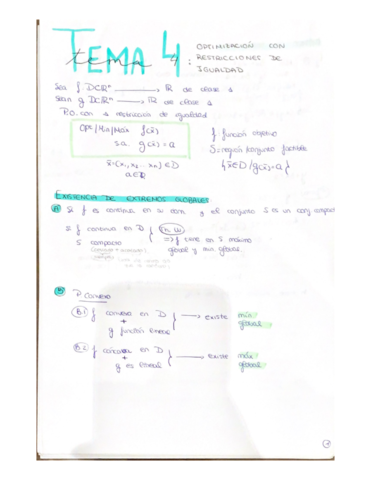 TEMA 4
tema 4:
OPTIMIZACIÓN CON
RESTRICCIONES DE
IGUALDAD
Sea f D⊂ℝⁿ → ℝ de clase 1
Sean g D⊂ℝⁿ → ℝ de clase 1
P.O. con 1 restricción de igualdad
Opt/Min/Máx f(x̄)
s.a. g(x̄)=a
x̄=(x₁,x₂...xₙ)∈D
a∈ℝ
f función objetivo
S=región/conjunto factible
{x̄∈D/g(x̄)=a}
EXISTENCIA DE EXTREMOS GLOBALES
A Si f es continua en su dom y el conjunto S es un conj compacto
Si f continua en D
S compacto
⇒ f tiene en S máximo
global y mín global.
B P. Convexo
B1 f convexa en D
+
g función lineal
→ existe mín
global
B2 f cóncava en D
+
g es lineal
→ existe máx
global
1